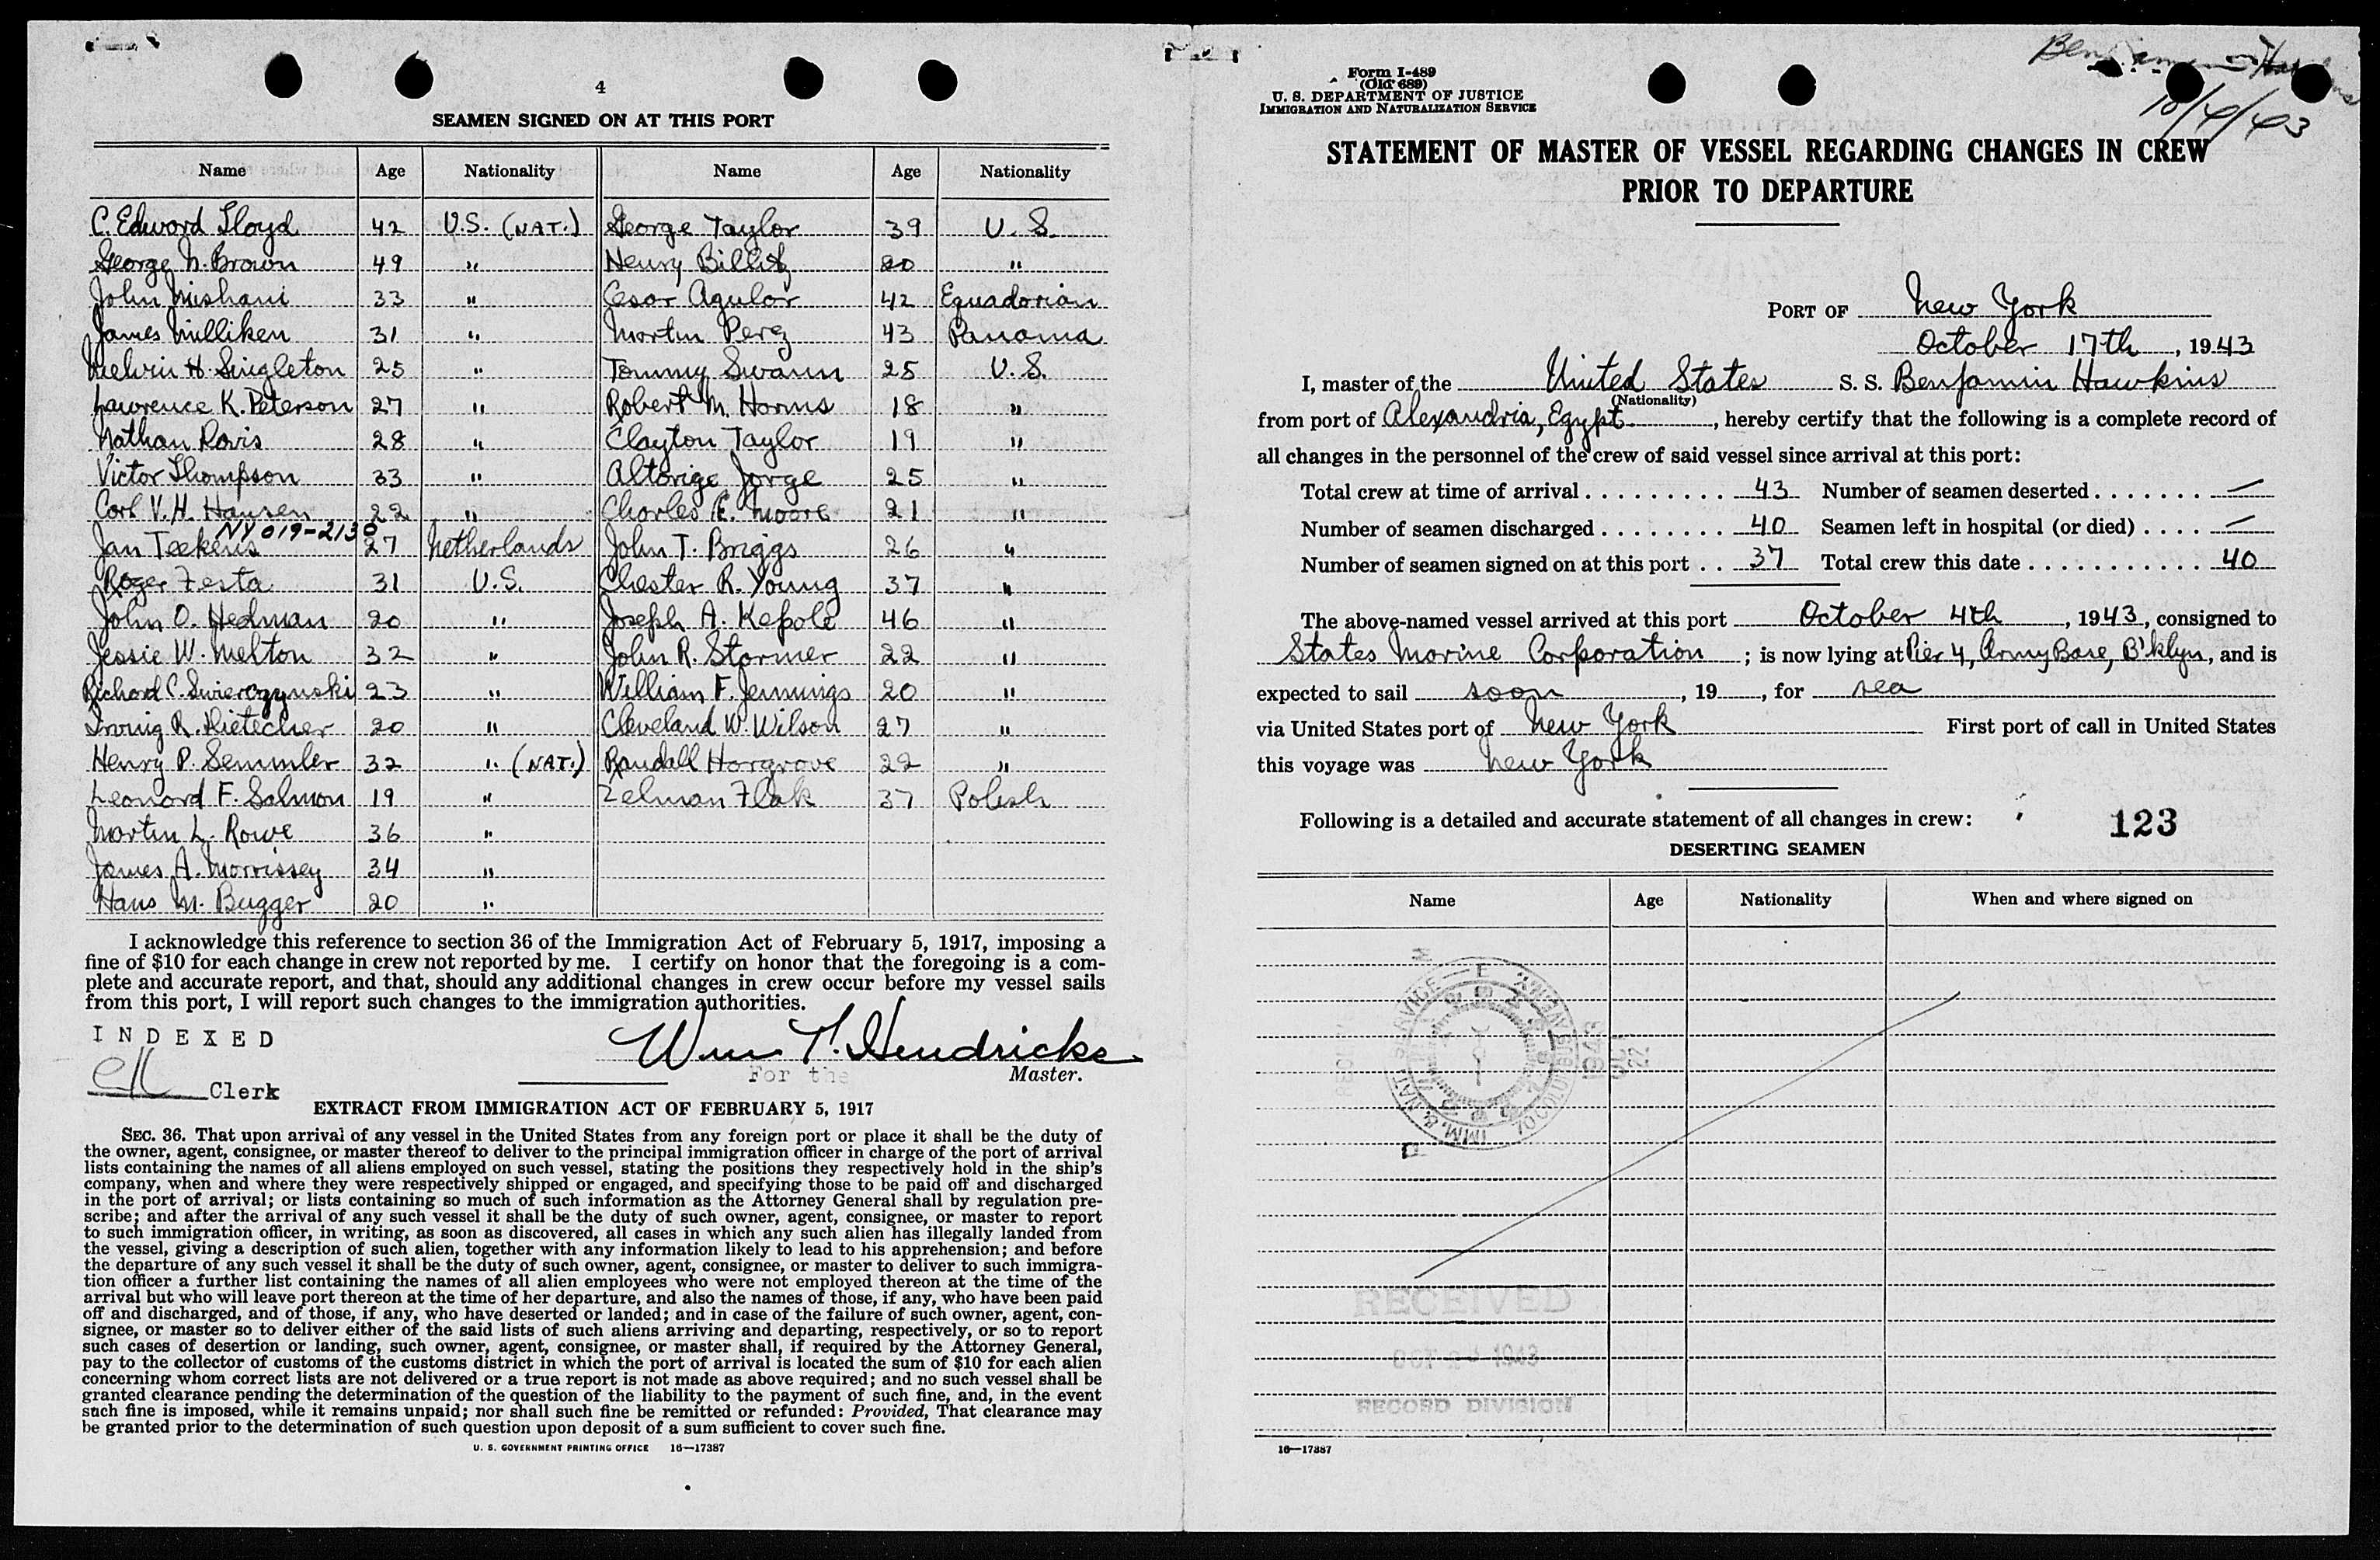 4
SEAMEN SIGNED ON AT THIS PORT
Name Age Nationality Name Age Nationality
C. Edward Lloyd 42 U.S. (NAT.) George Taylor 39 U. S.
George N. Brown 49 " Henry 20 "
John Mishani 33 " Cesar Aguilar 42 Equadorian
James Milliken 31 " Martin Perez 43 Panama
Melvin H. Singleton 25 " Tommy Swann 25 U.S.
Lawrence K. Peterson 27 " Robert M. Harms 18 "
Nathan Ravis 28 " Clayton Taylor 19 "
Victor Thompson 33 " Altorige Jorge 25 "
Carl V. H. Hansen 22 " Charles E. Moore 21 "
NY 019-2130
Jan Teekens 27 Netherlands John T. Briggs 26 "
Roger Festa 31 U.S. Chester R. Young 37 "
John O. Hedman 20 " Joseph A. Kepole 46 "
Jessie W. Melton 32 " John R. Stormer 22 "
Richard C. Swierczynski 23 " William F. Jennings 20 "
Irving R. Dietecher 20 " Cleveland W. Wilson 27 "
Henry P. Semmler 32 " (NAT.) Randall Hargrove 22 "
Leonard F. Salmon 19 " Zelman Flak 37 Polish
Martin L. Rowe 36 "
James A. Morrissey 34 "
Hans M. Bugger 20 "
I acknowledge this reference to section 36 of the Immigration Act of February 5, 1917, imposing a
fine of $10 for each change in crew not reported by me. I certify on honor that the foregoing is a com-
plete and accurate report, and that, should any additional changes in crew occur before my vessel sails
from this port, I will report such changes to the immigration authorities.
INDEXED
Wm T. Hendricks
For the Master.
Clerk
EXTRACT FROM IMMIGRATION ACT OF FEBRUARY 5, 1917
SEC. 36. That upon arrival of any vessel in the United States from any foreign port or place it shall be the duty of
the owner, agent, consignee, or master thereof to deliver to the principal immigration officer in charge of the port of arrival
lists containing the names of all aliens employed on such vessel, stating the positions they respectively hold in the ship's
company, when and where they were respectively shipped or engaged, and specifying those to be paid off and discharged
in the port of arrival; or lists containing so much of such information as the Attorney General shall by regulation pre-
scribe; and after the arrival of any such vessel it shall be the duty of such owner, agent, consignee, or master to report
to such immigration officer, in writing, as soon as discovered, all cases in which any such alien has illegally landed from
the vessel, giving a description of such alien, together with any information likely to lead to his apprehension; and before
the departure of any such vessel it shall be the duty of such owner, agent, consignee, or master to deliver to such immigra-
tion officer a further list containing the names of all alien employees who were not employed thereon at the time of the
arrival but who will leave port thereon at the time of her departure, and also the names of those, if any, who have been paid
off and discharged, and of those, if any, who have deserted or landed; and in case of the failure of such owner, agent, con-
signee, or master so to deliver either of the said lists of such aliens arriving and departing, respectively, or so to report
such cases of desertion or landing, such owner, agent, consignee, or master shall, if required by the Attorney General,
pay to the collector of customs of the customs district in which the port of arrival is located the sum of $10 for each alien
concerning whom correct lists are not delivered or a true report is not made as above required; and no such vessel shall be
granted clearance pending the determination of the question of the liability to the payment of such fine, and, in the event
such fine is imposed, while it remains unpaid; nor shall such fine be remitted or refunded: Provided, That clearance may
be granted prior to the determination of such question upon deposit of a sum sufficient to cover such fine.
U. S. GOVERNMENT PRINTING OFFICE 16—17387
Form I-489
(Old 689)
U. S. DEPARTMENT OF JUSTICE
IMMIGRATION AND NATURALIZATION SERVICE
Benjamin Hawkins
10/4/43
STATEMENT OF MASTER OF VESSEL REGARDING CHANGES IN CREW
PRIOR TO DEPARTURE
PORT OF New York
October 17th, 1943
I, master of the United States S. S. Benjamin Hawkins
(Nationality)
from port of Alexandria, Egypt, hereby certify that the following is a complete record of
all changes in the personnel of the crew of said vessel since arrival at this port:
Total crew at time of arrival . . . . . . . . . 43 Number of seamen deserted . . . . . . . —
Number of seamen discharged . . . . . . . 40 Seamen left in hospital (or died) . . . . —
Number of seamen signed on at this port . . 37 Total crew this date . . . . . . . . . . . . 40
The above-named vessel arrived at this port October 4th, 1943, consigned to
States Marine Corporation; is now lying at Pier 4, Army Base, B'klyn, and is
expected to sail soon, 19, for sea
via United States port of New York First port of call in United States
this voyage was New York
Following is a detailed and accurate statement of all changes in crew: 123
DESERTING SEAMEN
Name Age Nationality When and where signed on
IMM. & NAT. SERVICE
1943
OCT
22
RECEIVED
OCT 1943
RECORD DIVISION
16—17387